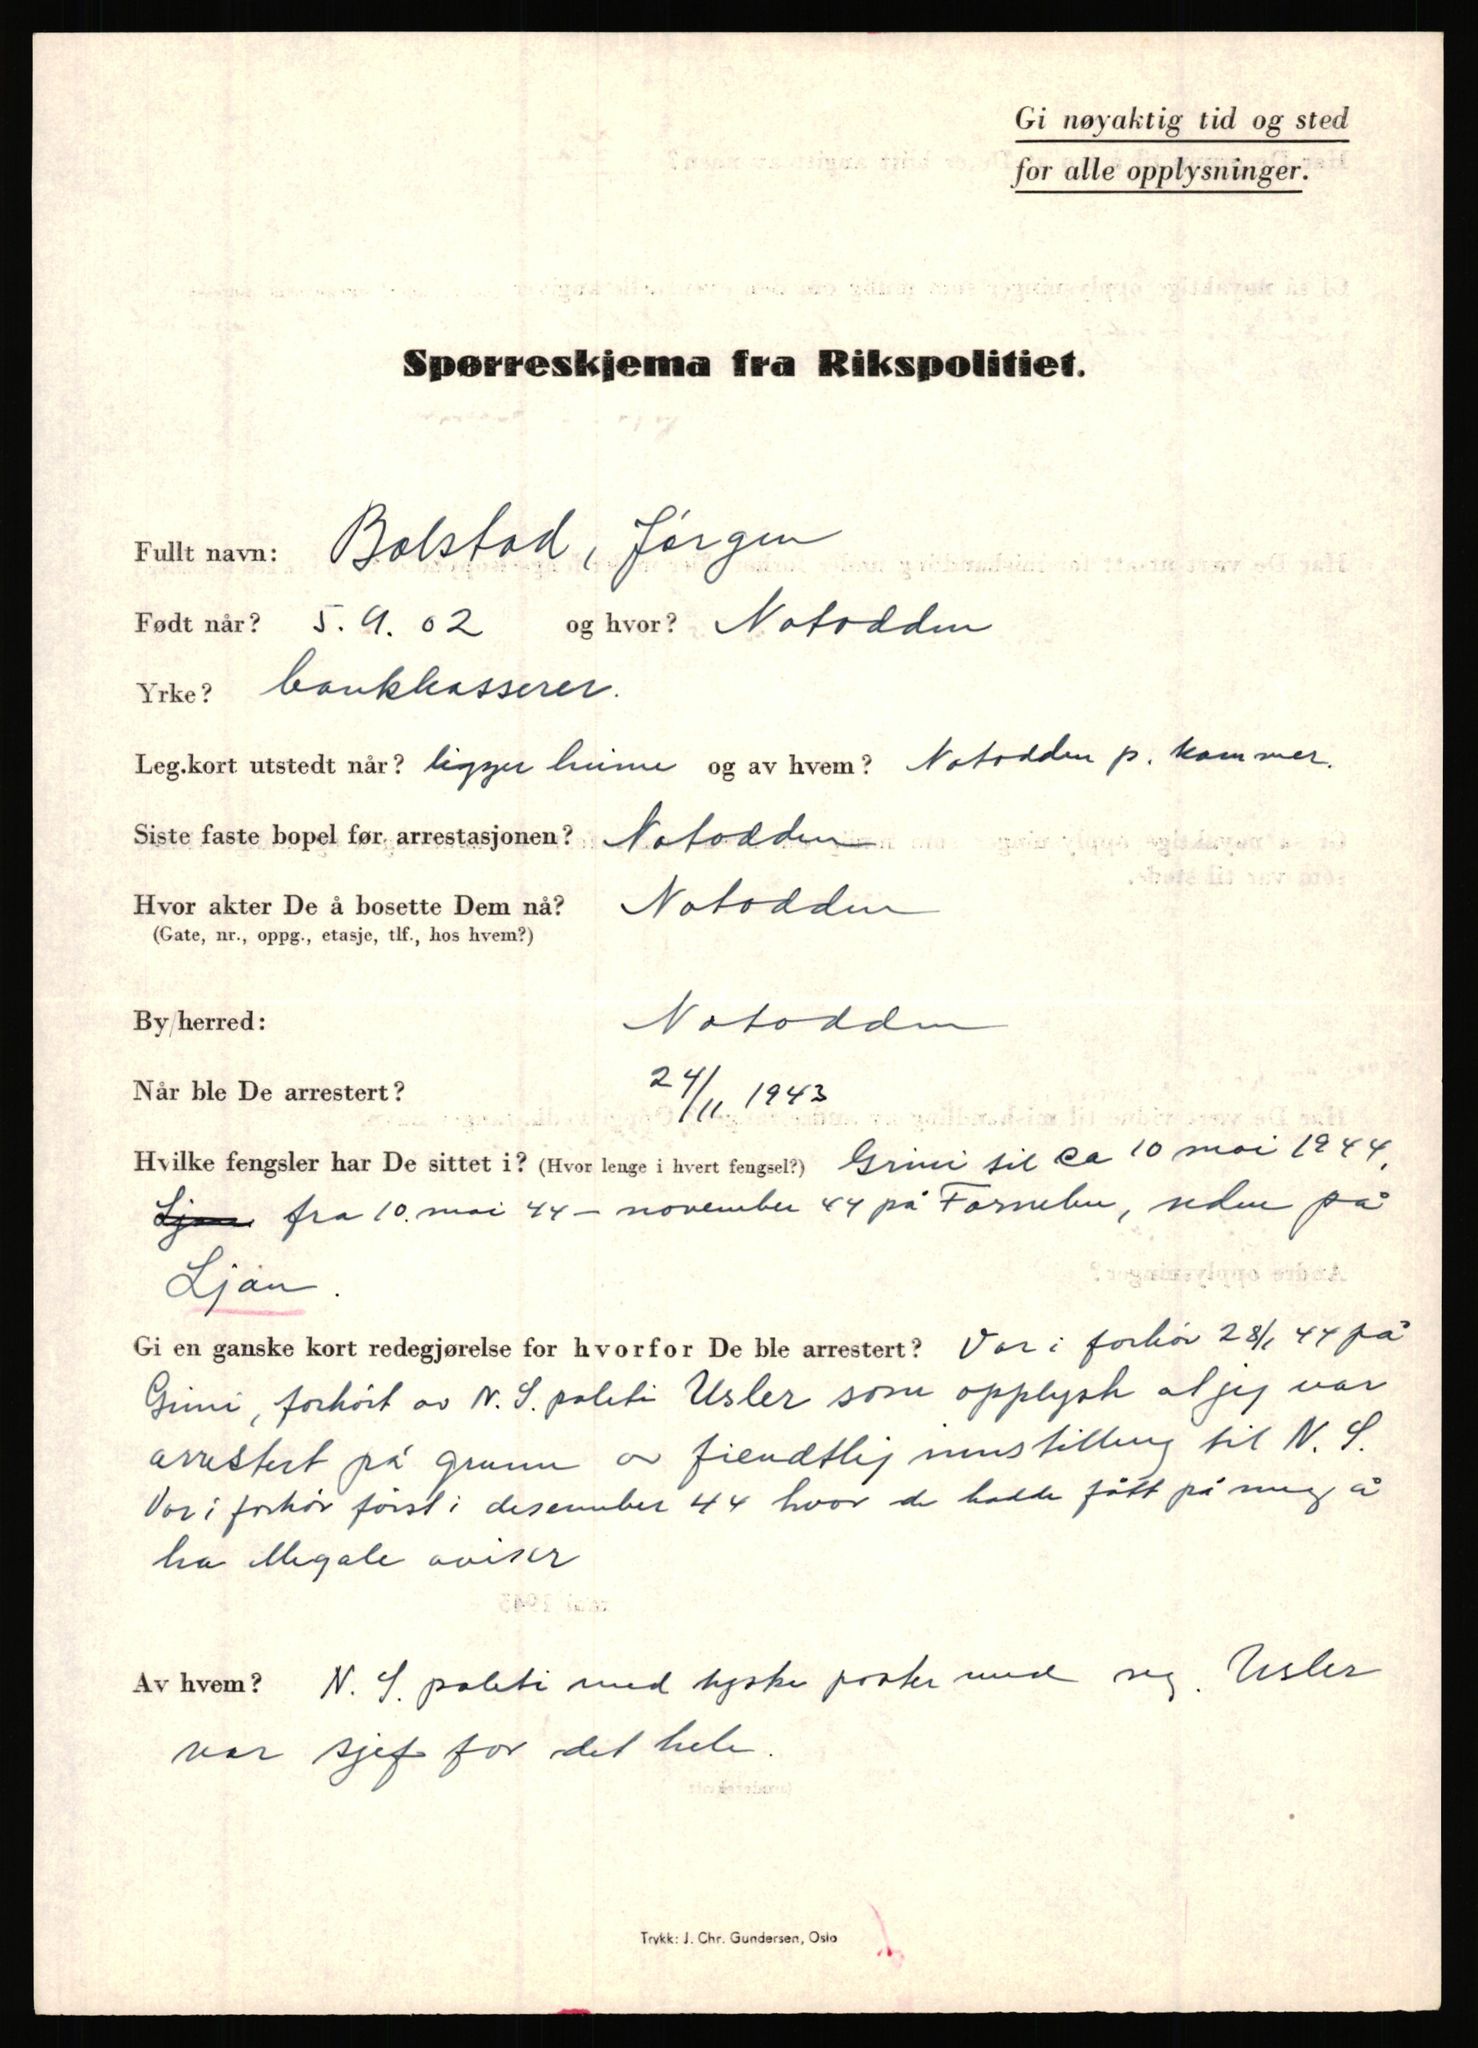 Gi nøyaktig tid og sted
for alle opplysninger.
Spørreskjema fra Rikspolitiet.
Fullt navn: Bolstad, Jørgen
Født når? 5. 9. 02 og hvor? Notodden
Yrke? bankkasserer.
Leg.kort utstedt når? ligger hime og av hvem? Notodden p. kammer.
Siste faste bopel før arrestasjonen? Notodden
Hvor akter De å bosette Dem nå? Notodden
(Gate, nr., oppg., etasje, tlf., hos hvem?)
By/herred: Notodden
Når ble De arrestert? 24/11 1943
Hvilke fengsler har De sittet i? (Hvor lenge i hvert fengsel?) Grini til ca 10 mai 1944.
Ljan fra 10. mai 44 – november 44 på Fornebu, siden på
Ljan.
Gi en ganske kort redegjørelse for hvorfor De ble arrestert? Var i forhør 28/1 44 på
Grini, forhørt av N. S. politi Usler som opplyste at jeg var
arrestert på grunn av fiendtlig innstilling til N. S.
Var i forhør først i desember 44 hvor de hadde fått på meg å
ha illegale aviser
Av hvem? N. S. politi med tyske poster med seg. Usler
var sjef for det hele.
Trykk: J. Chr. Gundersen, Oslo